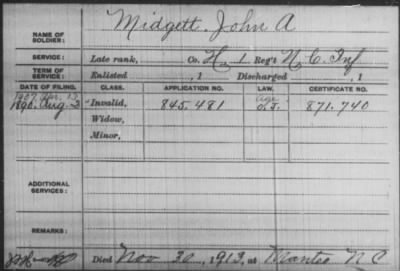 NAME OF SOLDIER: Midgett, John A
SERVICE: Late rank, Co. H, 1 Reg't N.C. Inf
TERM OF SERVICE: Enlisted , 1 Discharged , 1
DATE OF FILING. CLASS. APPLICATION NO. LAW. CERTIFICATE NO.
1907 Apr. 13 Age
1890. Aug. 2 Invalid, 845.481 O.S. 871.740
Widow,
Minor,
ADDITIONAL SERVICES:
REMARKS:
Died Nov 30, 1913, at Manteo N C